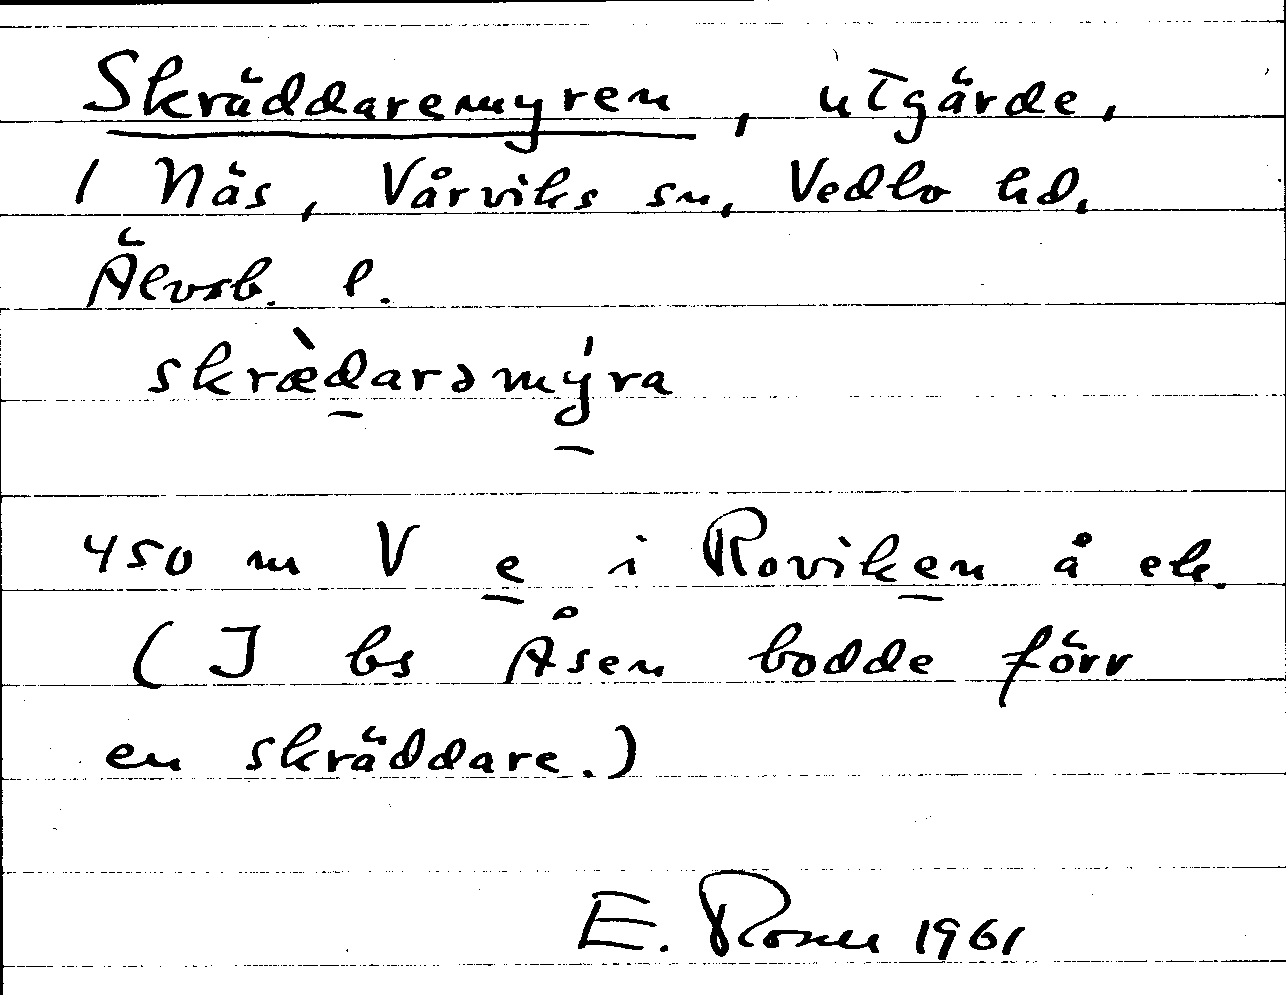 Skräddaremyren, utgärde,
1 Näs, Vårviks sn, Vedbo hd,
Älvsb. l.
skræ̀darəmýra
450 m V e i Roviken å ek.
(I bs Åsen bodde förr
en skräddare.)
E. Rosell 1961